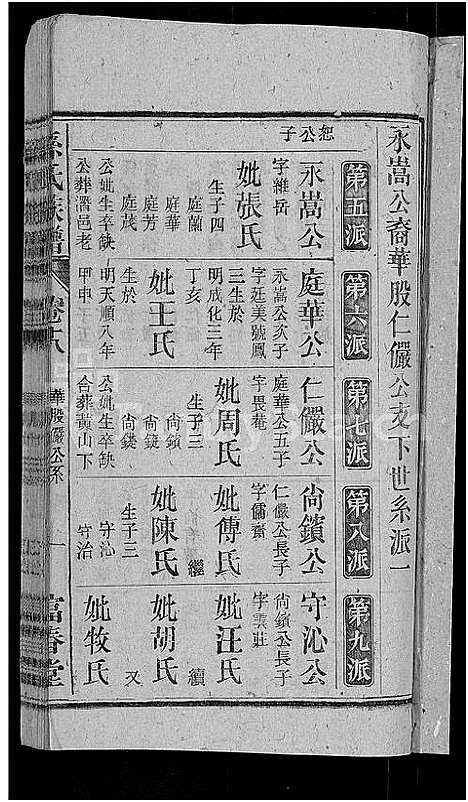 永嵩公裔華股仁儼公支下世系派一
第五派
恕公子
永嵩公
字維岳
妣張氏
生子四
庭蘭
庭華
庭芳
庭茂
公妣生卒缺
公葬濳邑老
第六派
庭華公
永嵩公次子
字廷美號鳳
三生於
明成化三年
丁亥
妣王氏
生於
明天順八年
甲申
第七派
仁儼公
庭華公五子
字畏菴
妣周氏
生子三
尙鑌
尙鏡
尙鏤
公妣生卒缺
合葬黃山下
第八派
尙鑌公
仁儼公長子
字儒齋
妣傅氏
繼
妣陳氏
生子三
守沁
守治
第九派
守沁公
尙鑌公長子
字美莊
妣汪氏
續
妣胡氏
又
妣牧氏
孫氏族譜
卷十八
華股儼公系
一
富春堂